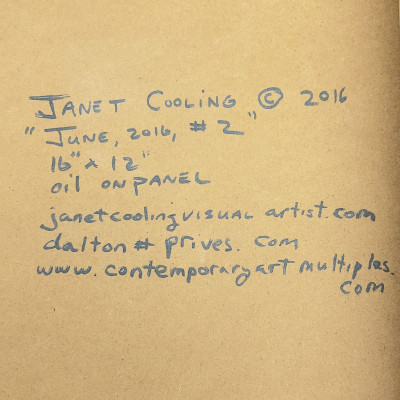 JANET COOLING © 2016
"JUNE, 2016, # 2"
16" x 12"
oil ON PANEL
janetcoolingVISUAL artist.com
dalton # prives. com
www.contemporaryartmultiples.
com